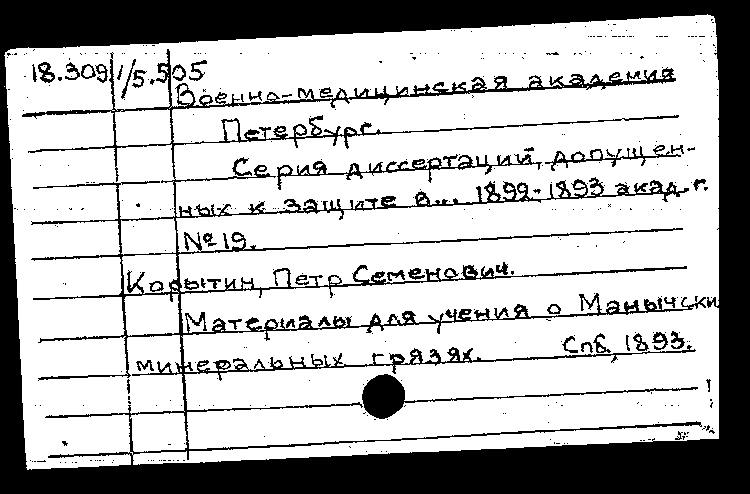 18.309 1/5.505
Военно-медицинская академия
Петербург.
Серия диссертаций, допущен-
ных к защите в... 1892-1893 акад. г.
№ 19.
Корытин, Петр Семенович.
Материалы для учения о Манычски
минеральных грязях. Спб, 1893.